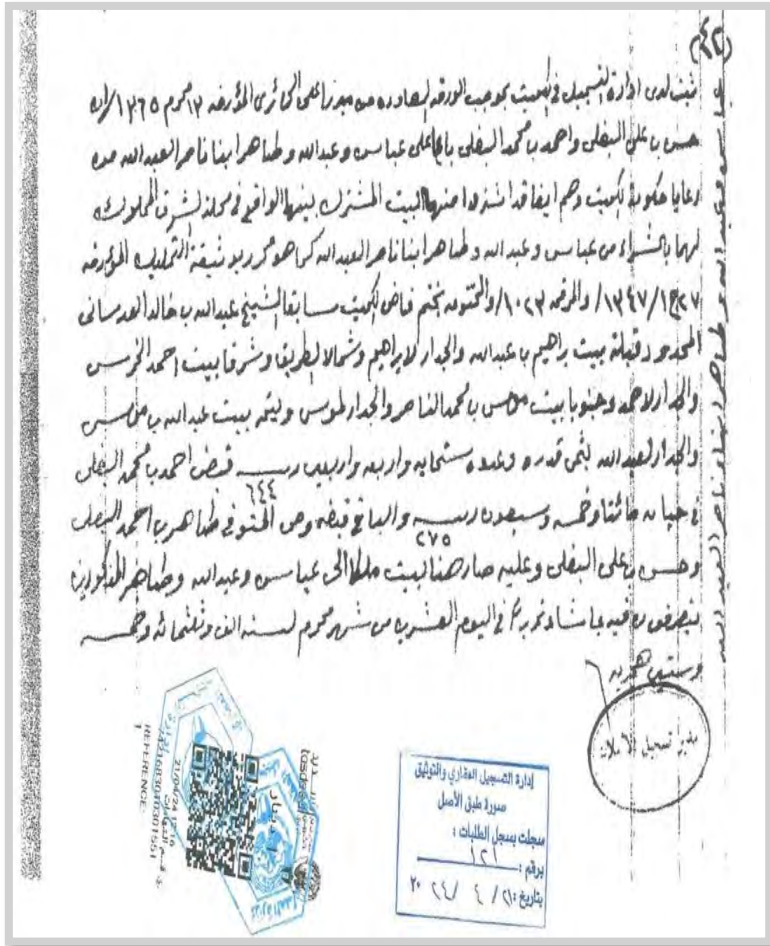 (٤٢)
ثبت لدى ادارة التسجيل في الكويت بموجب الورقه الصادره من ميرزا علي الحائري المؤرخه ١٢ محرم ١٣٦٥/ ان
حسن بن علي البغلي واحمد بن محمد البغلي باعا على عباس وعبدالله وطاهر ابنا ناصر العبدالله من
رعايا حكومة الكويت وهم ايضا قد اشتروا منهما البيت المشترك بينهما الواقع في محلة الشرق المملوك
لهما بالشراء من عباس وعبدالله وطاهر ابنا ناصر العبدالله كما هو محرر بوثيقة التمليك المؤرخه
٢٧ج١٣٤٧/١ والمرقمه ١٠٢٣/ والمختومه بختم قاضي الكويت سابقا الشيخ عبدالله بن خالد العدساني
المحدود قبلة بيت براهيم بن عبدالله والجدار لابراهيم وشمالا الطريق وشرقا بيت احمد الخرس
والجدار لاحمد وجنوبا بيت بن محمد الناصر والجدار وليته بيت عبدالله بن
والجدار لعبدالله بثمن قدره وعدده ستمايه واربعه واربعين ربيه قبض احمد بن محمد البغلي
٦٤٤
في حياته مائتا وخمسه وسبعون ربيه والباقي قبضه وصي المتوفي طاهر بن احمد البغلي
٢٧٥
وحسن بن علي البغلي وعليه صار هذا البيت ملكا الى عباس وعبدالله وطاهر المذكورين
يتصرفون فيه بما شاءو تحريرا في اليوم العشرين من شهر محرم لسنه الف وثلثمائه وخمسه
وستين هجريه
مدير تسجيل الاملاك
عباس وعبدالله وطاهر ابناء ناصر العبدالله
إدارة التسجيل العقاري والتوثيق
صورة طبق الأصل
سجلت بسجل الطلبات :
برقم : ١٢١
بتاريخ : ٢١ / ٤ / ٢٤ ٢٠
21/04/24 12:16
REFERENCE:
1